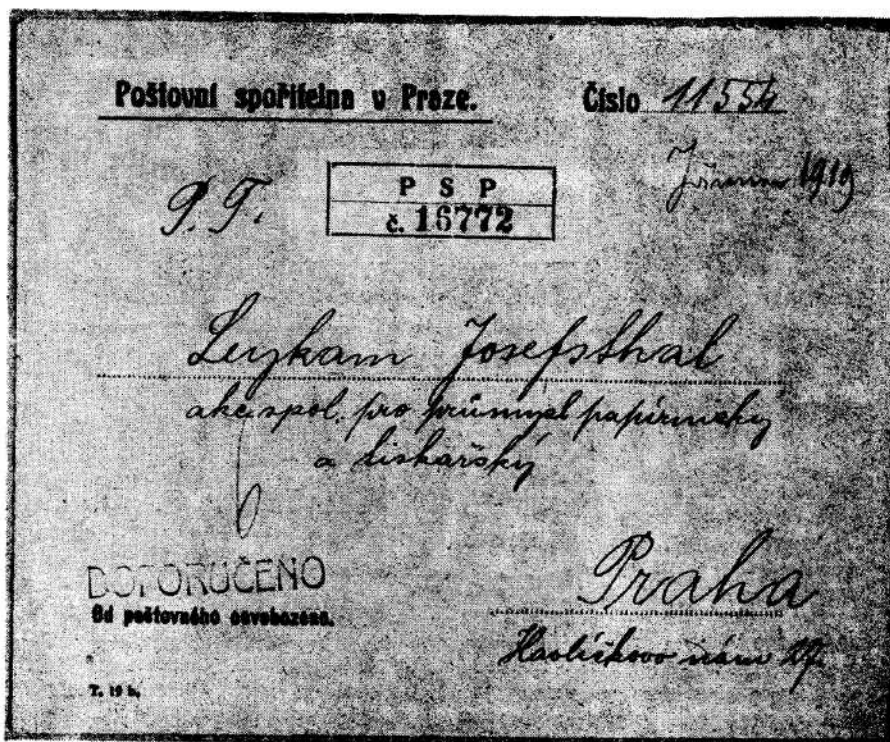 Poštovní spořitelna v Praze. Číslo 11554
1919
P. T.
P S P
č. 16772
Leykam Josefsthal
akc. spol. pro průmysl papírnický
a tiskařský
DOPORUČENO
Od poštovného osvobozeno.
Praha
Havlíčkovo nám.
T. 19 b.